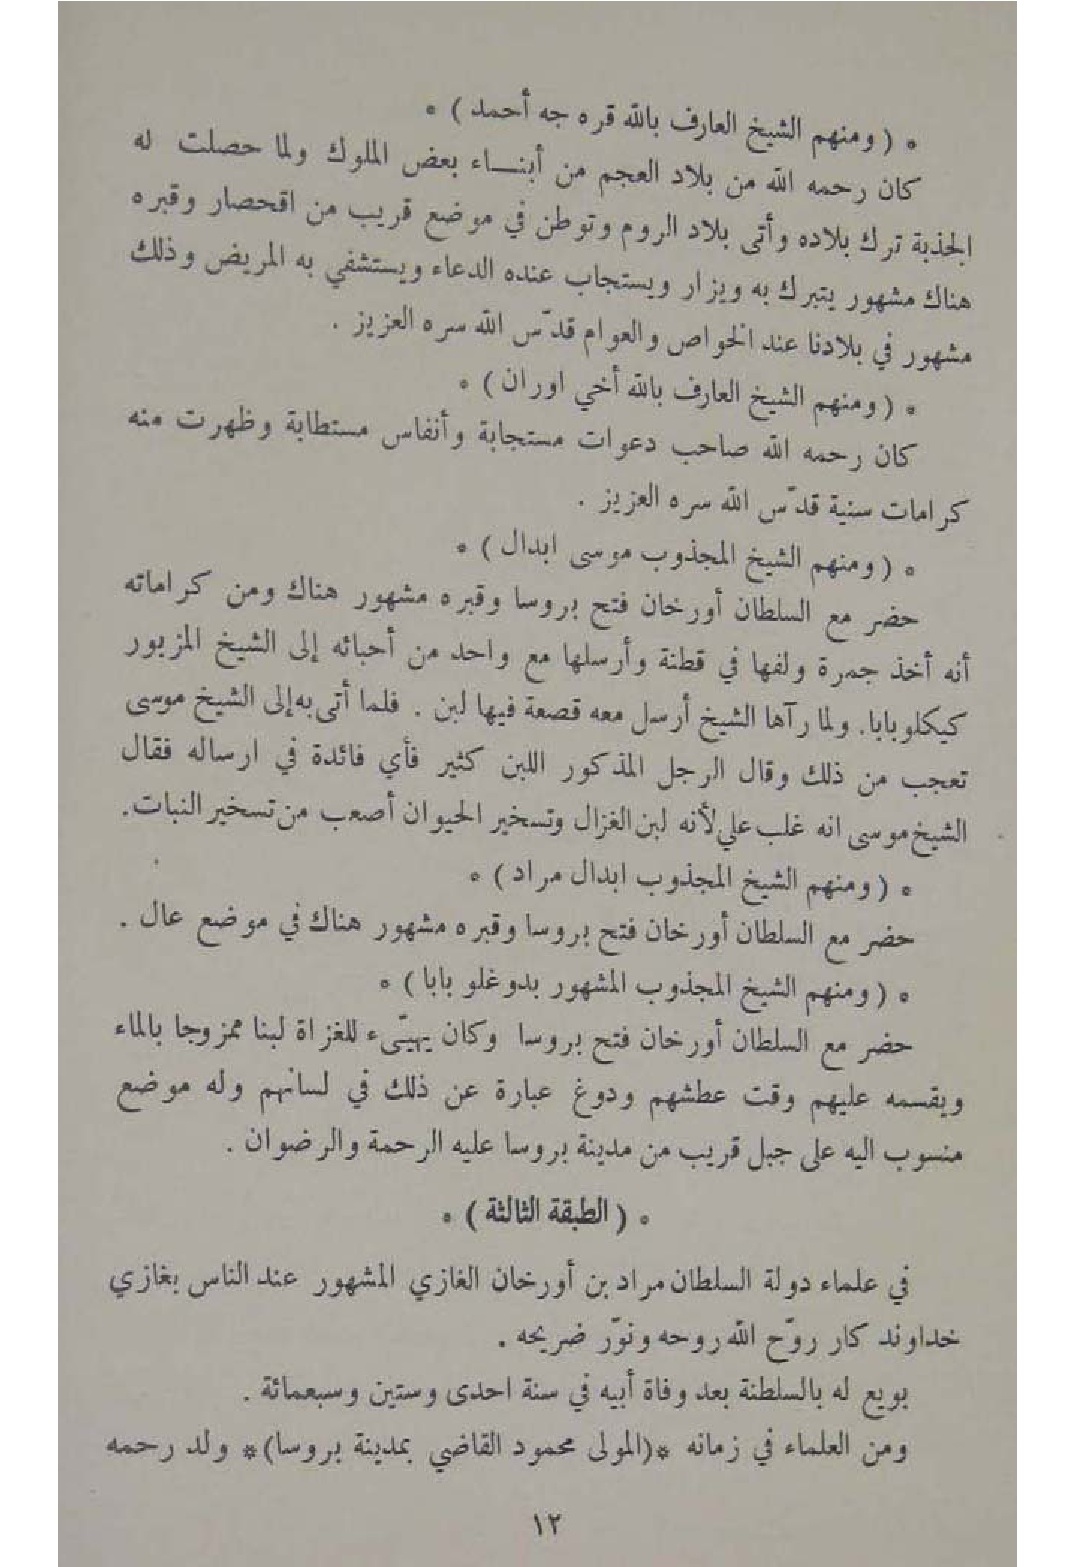 * ( ومنهم الشيخ العارف بالله قره جه أحمد ) *
كان رحمه الله من بلاد العجم من أبنــاء بعض الملوك ولما حصلت له
الجذبة ترك بلاده وأتى بلاد الروم وتوطن في موضع قريب من اقحصار وقبره
هناك مشهور يتبرك به ويزار ويستجاب عنده الدعاء ويستشفي به المريض وذلك
مشهور في بلادنا عند الخواص والعوام قدّس الله سره العزيز .
* ( ومنهم الشيخ العارف بالله أخي اوران ) *
كان رحمه الله صاحب دعوات مستجابة وأنفاس مستطابة وظهرت منه
كرامات سنية قدّس الله سره العزيز .
* ( ومنهم الشيخ المجذوب موسى ابدال ) *
حضر مع السلطان أورخان فتح بروسا وقبره مشهور هناك ومن كراماته
أنه أخذ جمرة ولفها في قطنة وأرسلها مع واحد من أحبائه إلى الشيخ المزبور
كيكلوبابا. ولما رآها الشيخ أرسل معه قصعة فيها لبن . فلما أتى به إلى الشيخ موسى
تعجب من ذلك وقال الرجل المذكور اللبن كثير فأي فائدة في ارساله فقال
الشيخ موسى انه غلب علي لأنه لبن الغزال وتسخير الحيوان أصعب من تسخير النبات.
* ( ومنهم الشيخ المجذوب ابدال مراد ) *
حضر مع السلطان أورخان فتح بروسا وقبره مشهور هناك في موضع عال .
* ( ومنهم الشيخ المجذوب المشهور بدوغلو بابا ) *
حضر مع السلطان أورخان فتح بروسا وكان يهيّىء للغزاة لبنا ممزوجا بالماء
ويقسمه عليهم وقت عطشهم ودوغ عبارة عن ذلك في لسانهم وله موضع
منسوب اليه على جبل قريب من مدينة بروسا عليه الرحمة والرضوان .
* ( الطبقة الثالثة ) *
في علماء دولة السلطان مراد بن أورخان الغازي المشهور عند الناس بغازي
خداوند كار روّح الله روحه ونوّر ضريحه .
بويع له بالسلطنة بعد وفاة أبيه في سنة احدى وستين وسبعمائة .
ومن العلماء في زمانه *(المولى محمود القاضي بمدينة بروسا)* ولد رحمه
١٢